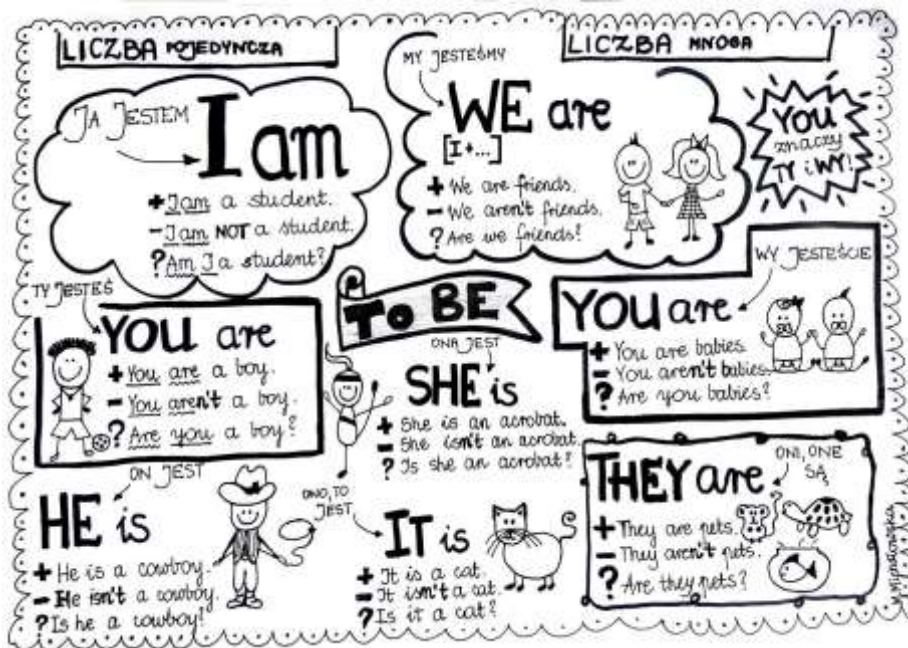 LICZBA POJEDYNCZA
JA JESTEM
I am
+ I am a student.
- I am NOT a student.
? Am I a student?
TY JESTEŚ
YOU are
+ You are a boy.
- You aren't a boy.
? Are you a boy?
ON JEST
HE is
+ He is a cowboy.
- He isn't a cowboy.
? Is he a cowboy?
TO BE
ONA JEST
SHE is
+ She is an acrobat.
- She isn't an acrobat.
? Is she an acrobat?
ONO, TO
JEST
IT is
+ It is a cat.
- It isn't a cat.
? Is it a cat?
LICZBA MNOGA
MY JESTEŚMY
WE are
[I+...]
+ We are friends.
- We aren't friends.
? Are we friends?
YOU
znaczy
TY i WY!
WY JESTEŚCIE
YOU are
+ You are babies.
- You aren't babies.
? Are you babies?
ONI, ONE
SĄ
THEY are
+ They are pets.
- They aren't pets.
? Are they pets?